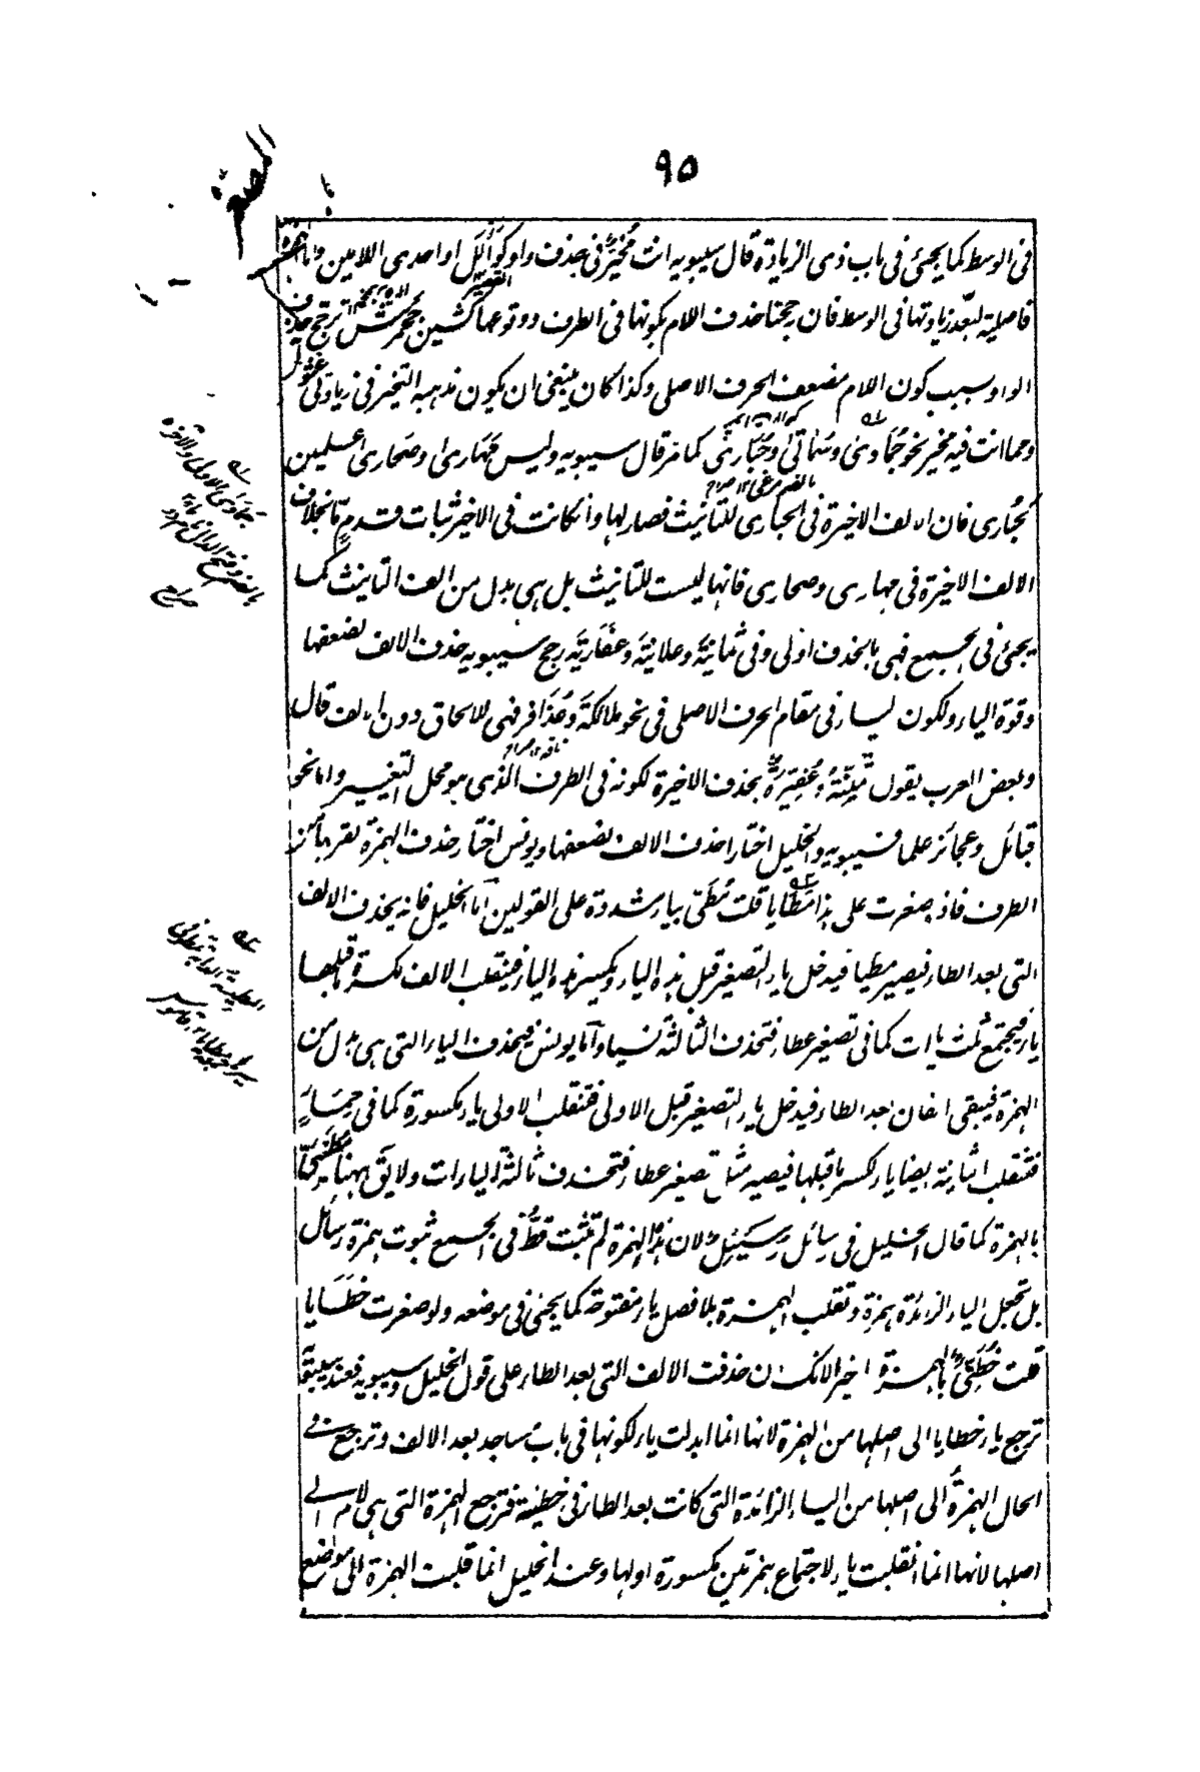 المصغر
٩٥
فى الوسط كما يجئ فى باب ذى الزيادة قال سيبويه انت مُخَيَّر فى حذف واو كَوَأْلَل او احدى اللامين واما الهمزة
فاصلية لبُعد زيادتها فى الوسط فان رجحنا حذف اللام بكونها فى الطرف ووقوعها كشين جحمرش ترجح حذف
الواو بسبب كون اللام مضعف الحرف الاصلى وكذا كان ينبغى ان يكون مذهبه التخير فى زيادتى
ومما انت فيه مخير نحو جُمَادى وسُمَانى وحُبَارى كما مر قال سيبويه وليس مَهَارى وصَحارى علمين
كحُبارى فان الالف الاخيرة فى الحبارى للتانيث فصار لها وان كانت فى الاخير ثبات قدمٍ ما بخلاف
الالف الاخيرة فى مهارى وصحارى فانها ليست للتانيث بل هى بدل من الف التانيث كما
يجئ فى الجمع فهى بالحذف اولى وفى ثمانية وعلانية وعفارية رجح سيبويه حذف الالف لضعفها
وقوة الياء ولكون الياء فى مقام الحرف الاصلى فى نحو ملائكة وعُذَافر فهى للالحاق دون الالف قال
وبعض العرب يقول ثُمَيِّنَة وعُفَيِّرة بحذف الاخيرة لكونه فى الطرف الذى هو محل التغيير واما نحو
قبائل وعجائز علما فسيبويه والخليل اختارا حذف الالف لضعفها ويونس اختار حذف الهمزة لقربها من
الطرف فاذا صغرت على هذا مَطَايا قلت مُطَىّ بياء مشددة على القولين اما الخليل فانه يحذف الالف
التى بعد الطاء فيصير مطيا فيدخل ياء التصغير قبل هذه الياء ويكسر هذه الياء فينقلب الالف لكسرة ما قبلها
ياء فيجتمع ثلث ياات كما فى تصغير عطاء فتحذف الثالثة نسيا واما يونس فيحذف الياء التى هى بدل من
الهمزة فيبقى الفان بعد الطاء فيدخل ياء التصغير قبل الاولى فتنقلب الاولى ياء مكسورة كما فى حمار
فتنقلب الثانية ايضا ياء لكسر ما قبلها فيصير مثل تصغير عطاء فتحذف ثالثة الياءات ولا يق ههنا مُطَيْئٍ
بالهمزة كما قال الخليل فى رسائل رُسَيْئِل لان هذه الهمزة لم تثبت قطّ فى الجمع ثبوت همزة رسائل
بل تجعل الياء الزائدة همزة وتقلب الهمزة بلا فصل ياء مفتوحة كما يجئ فى موضعه ولو صغرت خَطَايا
قلت خُطَيِّئ بالهمزة اخيرا لانك ان حذفت الالف التى بعد الطاء على قول الخليل وسيبويه فعند سيبويه
ترجع ياء خطايا الى اصلها من الهمزة لانها انما ابدلت ياء لكونها فى باب مساجد بعد الالف وترجع فى
الحال الهمزة الى اصلها من الياء الزائدة التى كانت بعد الطاء فى خطيئة فترجع الهمزة التى هى لام الى
اصلها لانها انما انقلبت ياء لاجتماع همزتين مكسورة اولها وعند الخليل انما قلبت الهمزة الى موضع